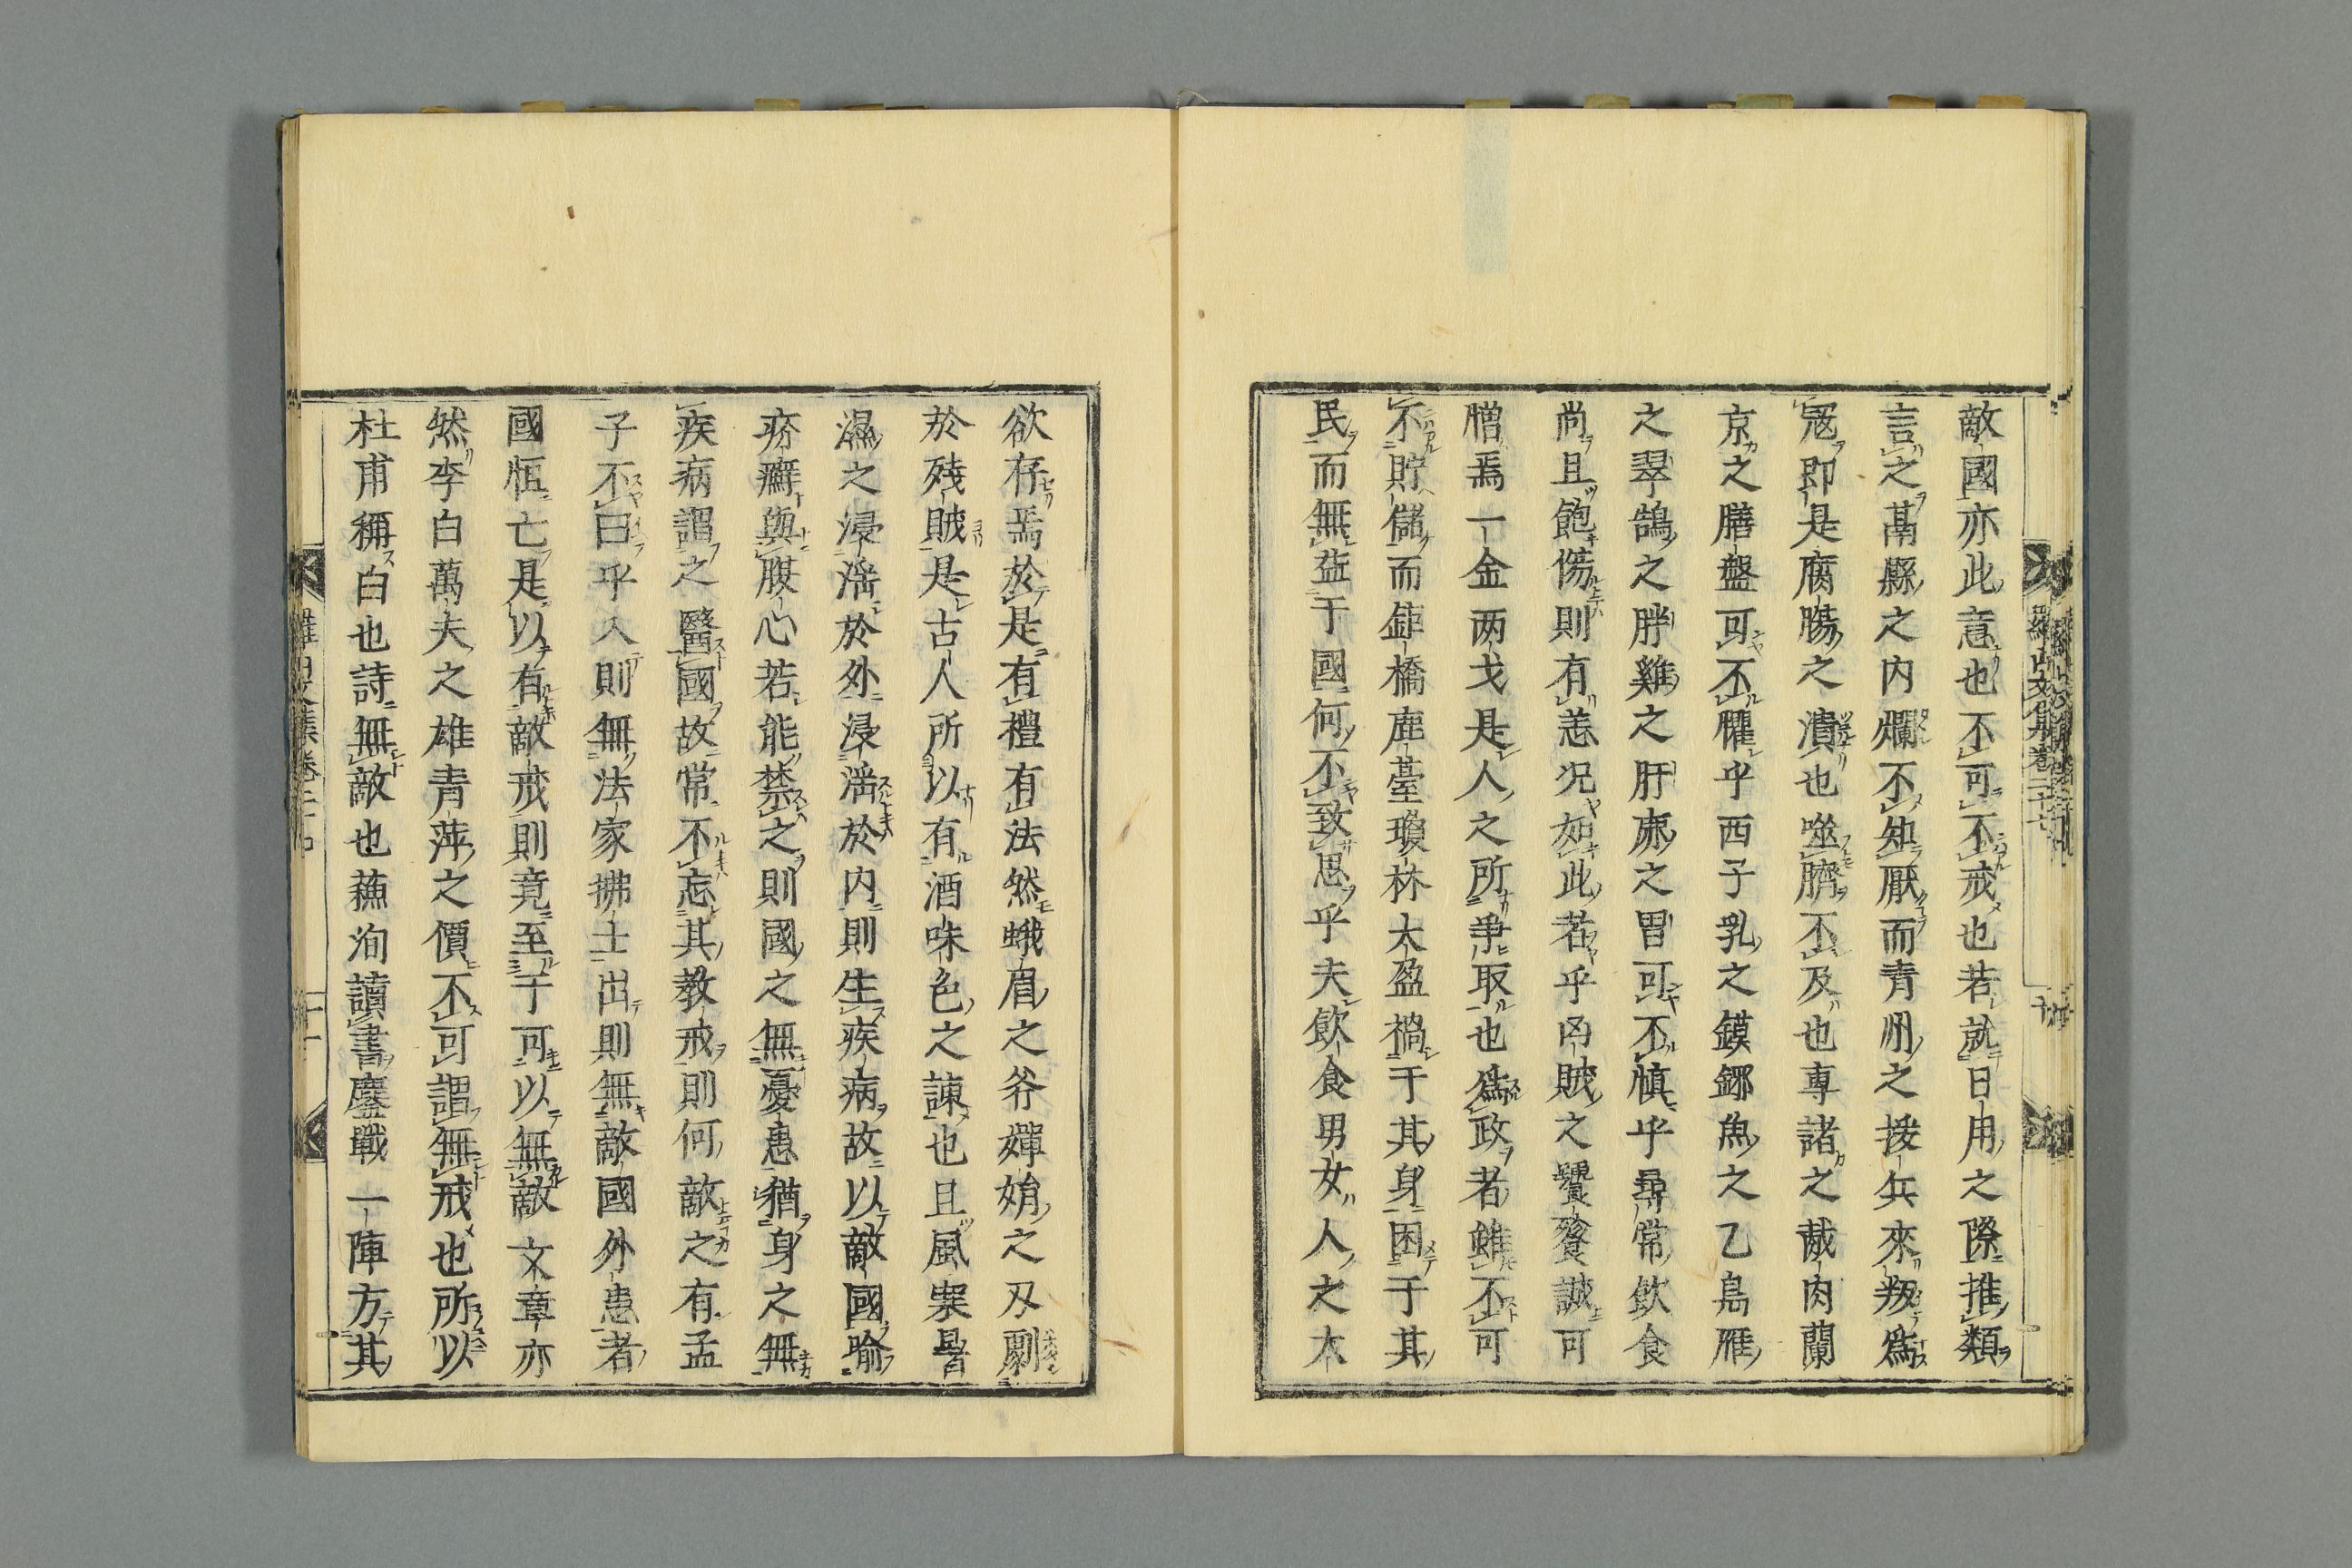 敵國亦此意也不可不戒也若就日用之際推類
言之鬲縣之内爛不知厭而青州之援兵來叛爲
冦即是腐膓之潰也噬臍不及也專諸之胾肉蘭
京之膳盤可不懼乎西子乳之鏌鎁魚之乙鳥雁
之翠鵠之胖雞之肝麃之胃可不愼乎尋常飲食
尚且飽傷則有恙况如此若乎凶賊之饗餮誠可
憎焉一金两戈是人之所爭取也爲政者雖不可
不貯儲而鉅橋鹿臺瓊林大盈禍于其身困于其
民而無益于國何不致思乎夫飲食男女人之大
欲存焉於是有禮有法然蛾眉之斧嬋娟之刄劚
於殘賊是古人所以有酒味色之諫也且風寒暑
濕之浸淫於外浸淫於内則生疾病故以敵國喻
疥癬與腹心若能禁之則國之無憂患猶身之無
疾病謂之醫國故常不忘其教戒則何敵之有孟
子不曰乎入則無法家拂士出則無敵國外患者
國恒亡是以有敵戒則竟至于可以無敵文章亦
然李白萬夫之雄青萍之價不可謂無戒也所以
杜甫稱白也詩無敵也蘓洵讀書鏖戰一陣方其
羅山文集卷二十七